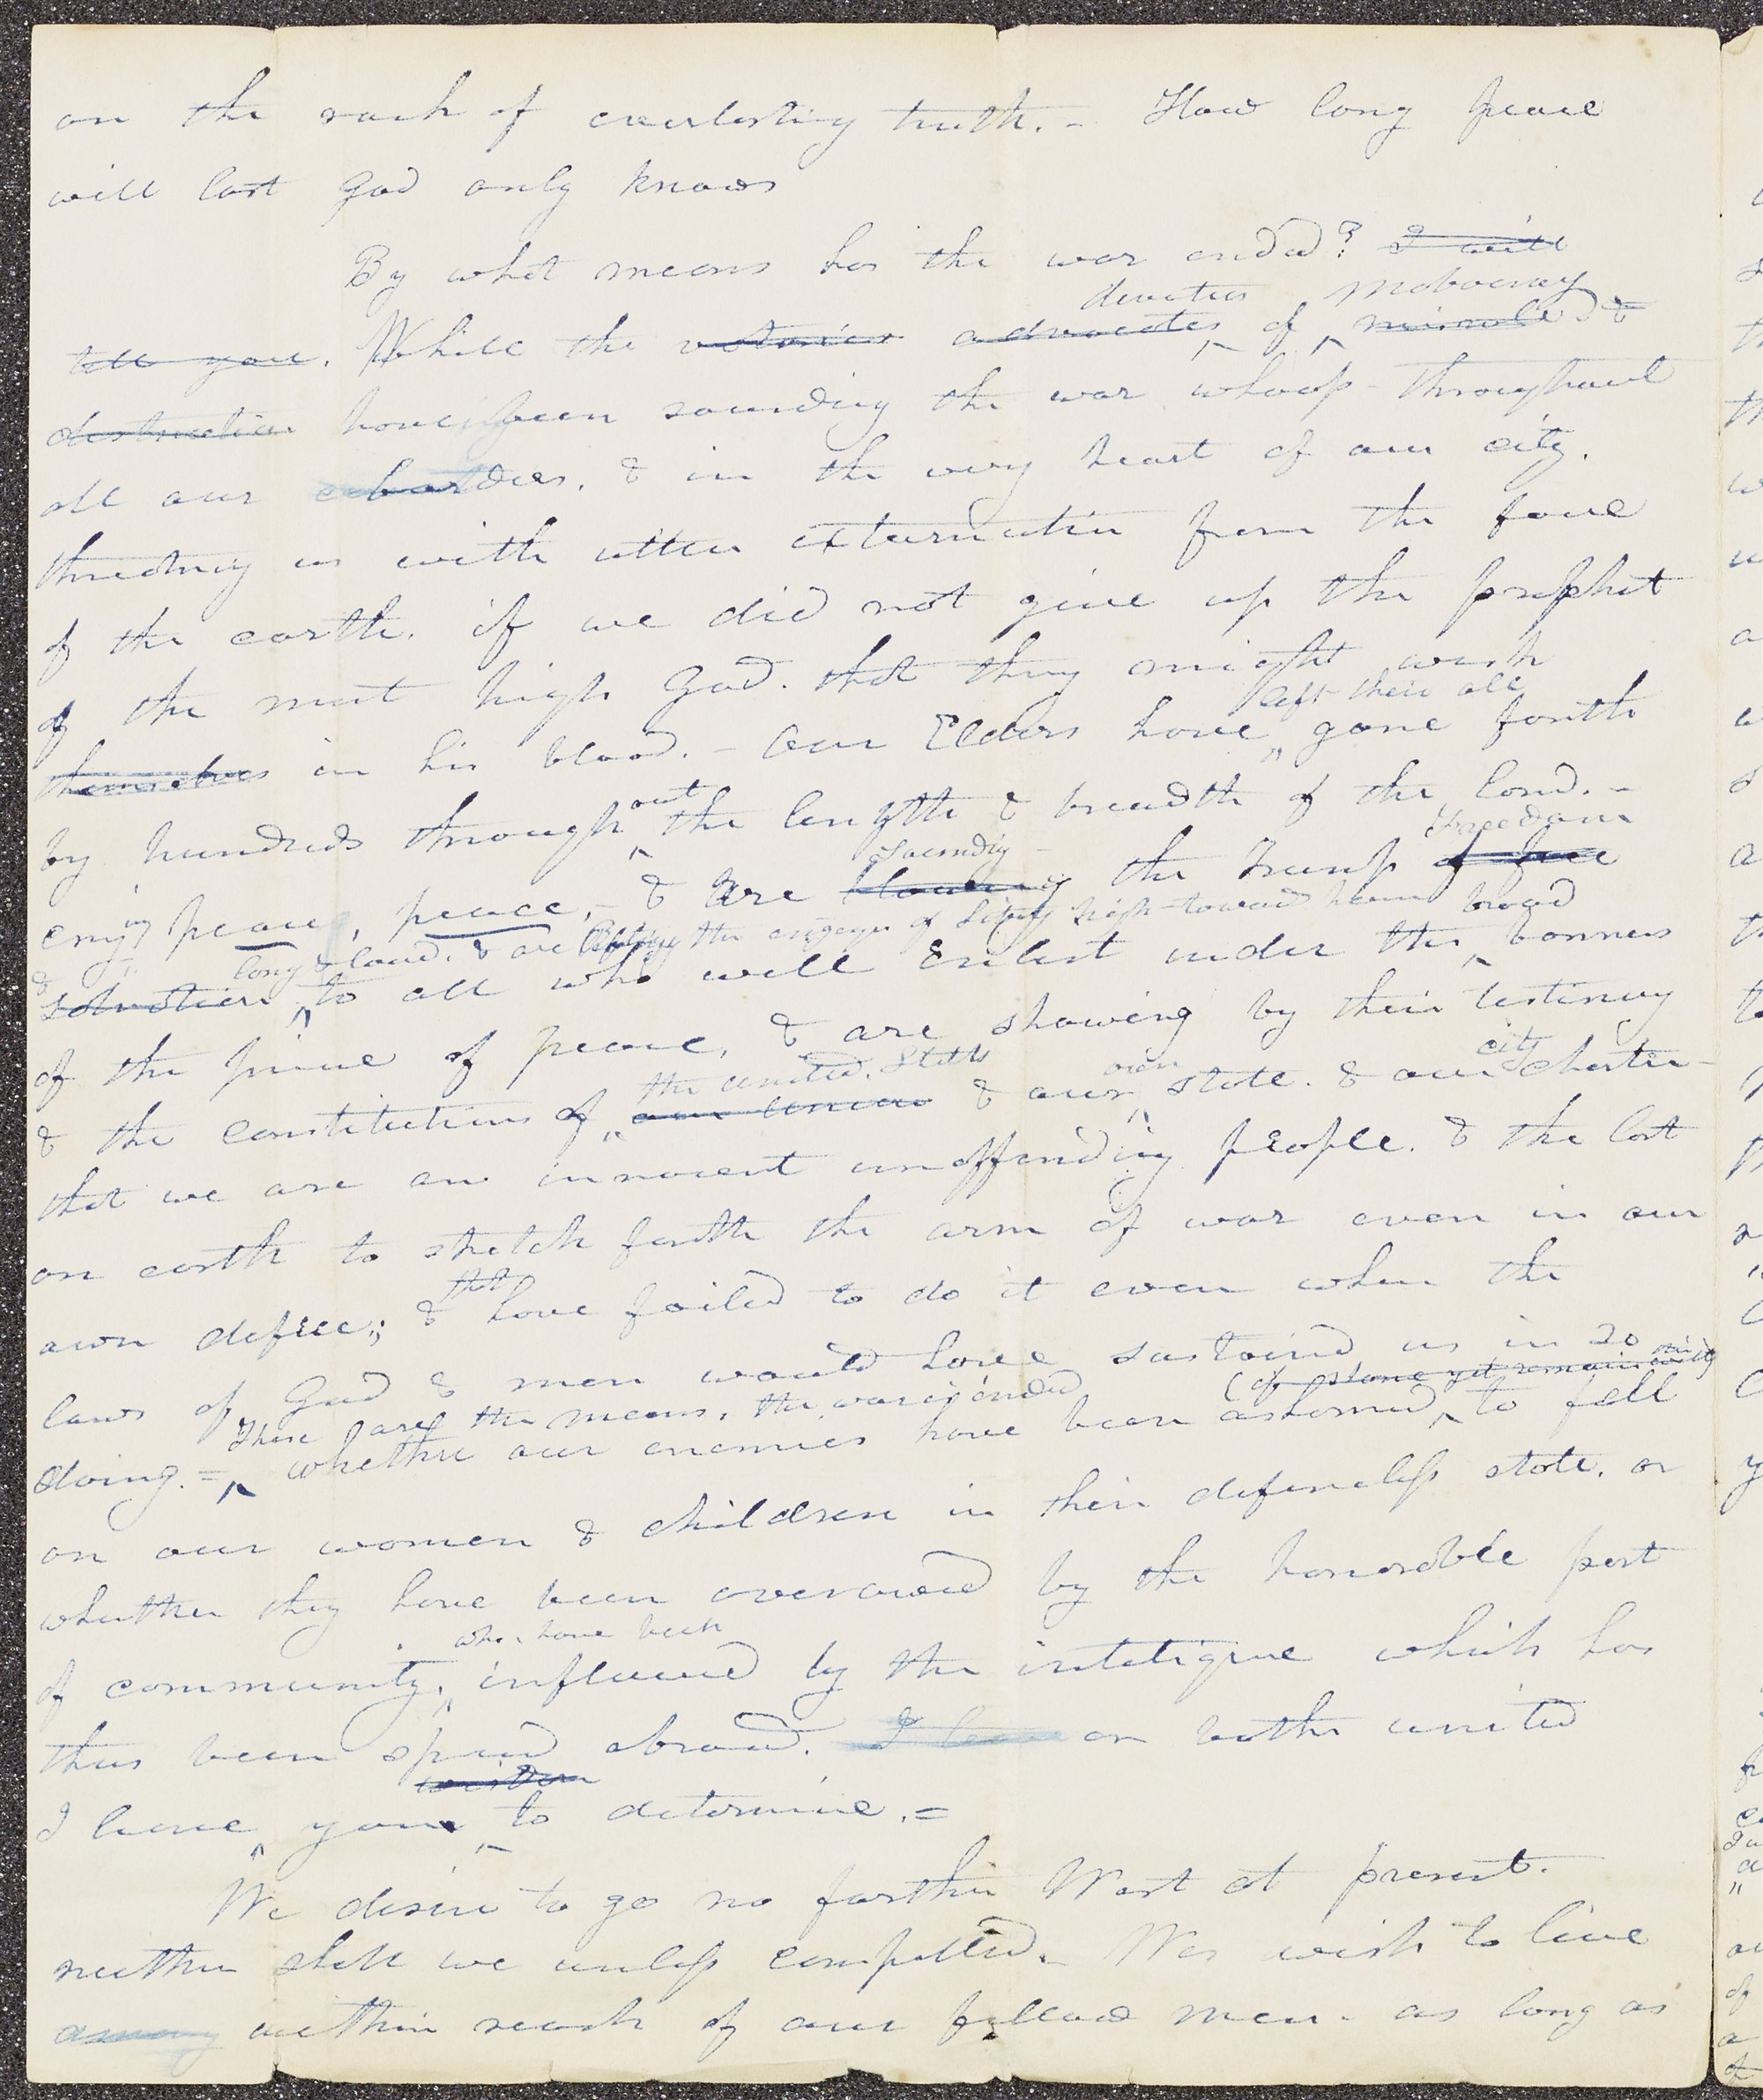 on the rock of everlasting truth. - How long peace
will last God only knows
By what means has the war ended? I will
devotees mobocracy
tell you. While the votaries advocates of misrule &
destruction have been sounding the war whoop throughout
all our borders, & in the very heart of our city.
threatnig us with utter extermatin from the face
of the earth. if we did not give up the prophet
of the most high God. that they might wash
left their all
themselves in his blood. - Our Elders have gone forth
by hundreds through out the length & breadth of the land. -
sounding Freedom
cryi'g peace, peace, - & are blowing the trump of free
long & loud. & are lifting the ensign of liberty high toward heaven broad
& salvation to all who will enlist under the banners
of the prince of peace, & are showing by their testimny
the united States own city
& the constitutions of our Union & our state. & our charter
that we are an innocent unoffending people. & the last
on earth to stretch forth the arm of war even in our
that
own defnce; & have failed to do it even when the
laws of God & men would have sustaind us in so
These are the means, the war is ended
doing. = whethre our enemies have been ashamed to fall
on our women & children in their defenceless state. or
whether they have been overawed by the honorable part
who have been
of community, influnced by the intelignce which has
thus been spread abroad. I leave or bothe united
wisdom
I leave you to determine. =
We desire to go no farther West at present.
neither shall we unless compelled. We wish to live
among within reach of our fellow men. as long as